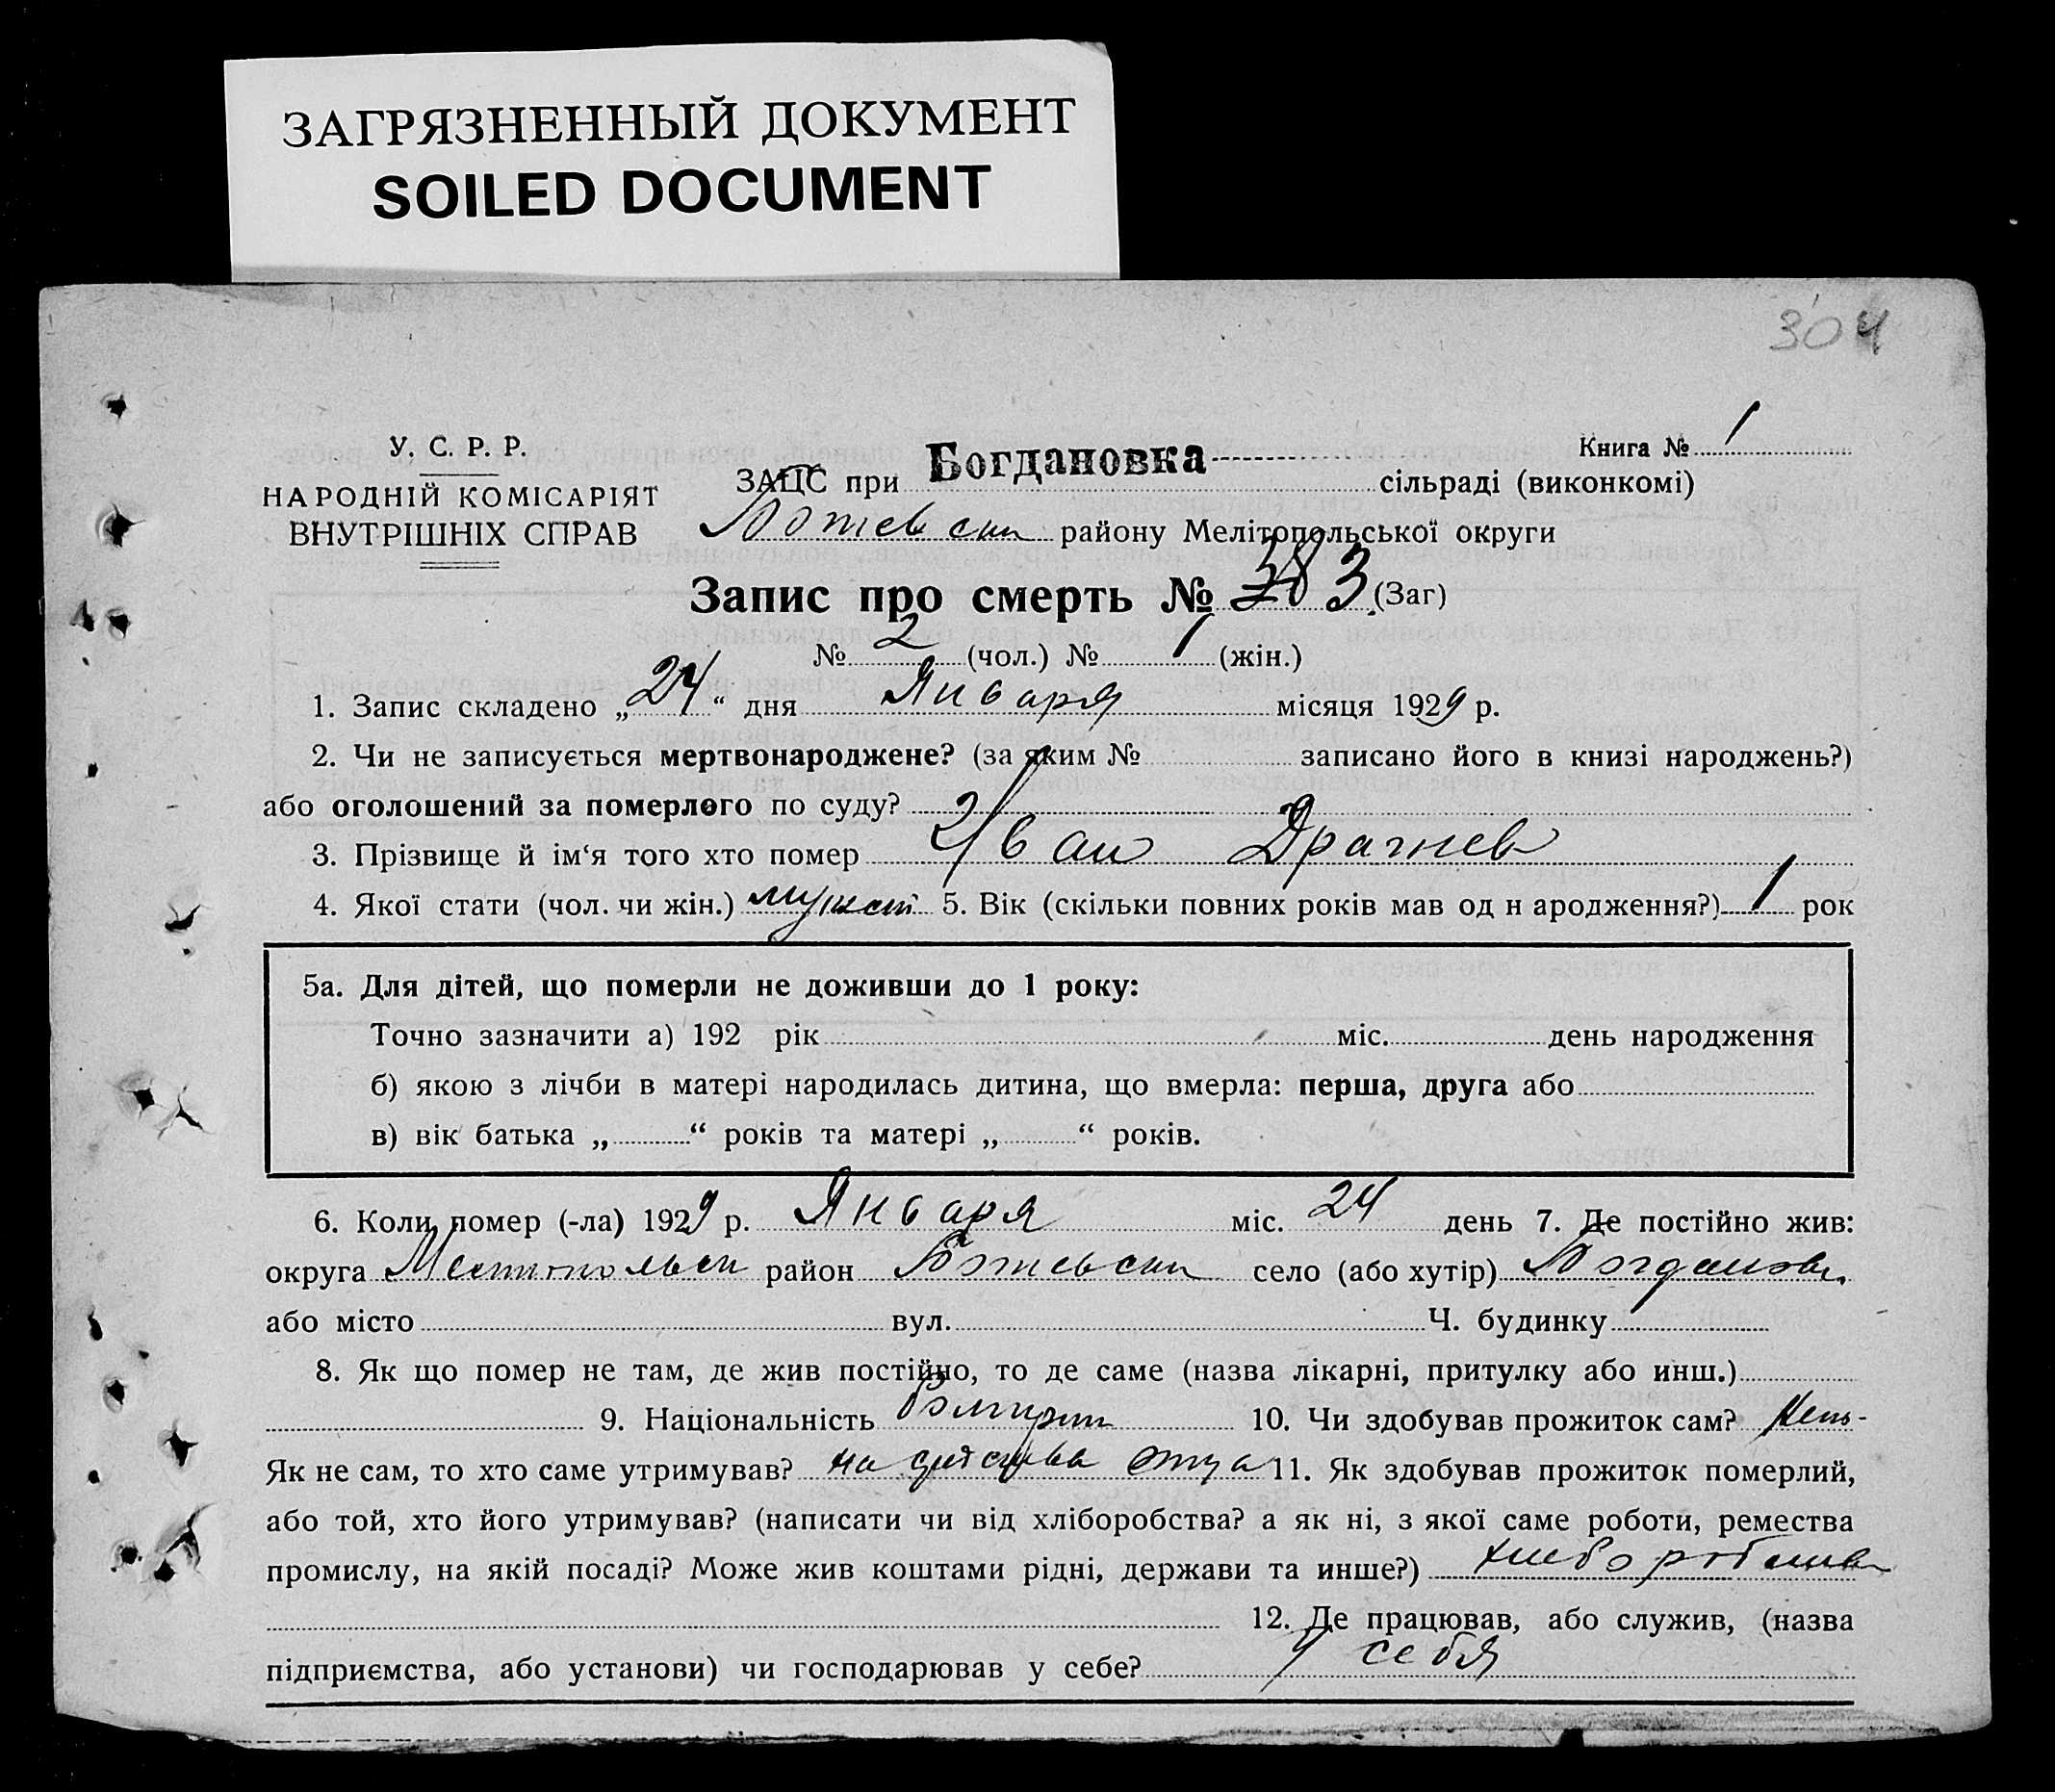 ЗАГРЯЗНЕННЫЙ ДОКУМЕНТ
SOILED DOCUMENT
304
У. С. Р. Р.
НАРОДНІЙ КОМІСАРІЯТ
ВНУТРІШНІХ СПРАВ
Книга № 1
ЗАЦС при Богдановка сільраді (виконкомі)
Ботевски району Мелітопольської округи
Запис про смерть № 3 (Заг)
№ 2 (чол.) № 1 (жін.)
1. Запис складено „24“ дня Января місяця 1929 р.
2. Чи не записується мертвонароджене? (за яким № записано його в книзі народжень?)
або оголошений за померлого по суду?
3. Прізвище й ім‘я того хто помер Иван Драгнев
4. Якої стати (чол. чи жін.) мужск 5. Вік (скільки повних років мав од н ародження?) 1 рок
5а. Для дітей, що померли не доживши до 1 року:
Точно зазначити а) 192 рік міс. день народження
б) якою з лічби в матері народилась дитина, що вмерла: перша, друга або
в) вік батька „ “ років та матері „ “ років.
6. Коли помер (-ла) 1929 р. Января міс. 24 день 7. Де постійно жив:
округа Мелитопольск район Ботевски село (або хутір) Богдановк
або місто вул. Ч. будинку
8. Як що помер не там, де жив постійно, то де саме (назва лікарні, притулку або инш.)
9. Національність Болгарин 10. Чи здобував прожиток сам?
Як не сам, то хто саме утримував? на средства отца 11. Як здобував прожиток померлий,
або той, хто його утримував? (написати чи від хліборобства? а як ні, з якої саме роботи, ремества
промислу, на якій посаді? Може жив коштами рідні, держави та инше?)
12. Де працював, або служив, (назва
підприємства, або установи) чи господарював у себе? У себя